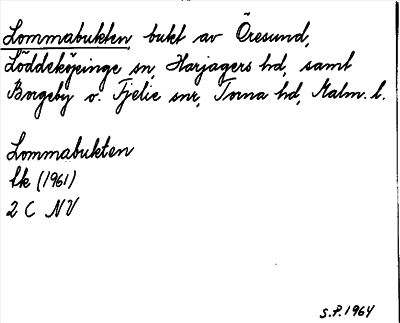 Lommabukten bukt av Öresund,
Löddeköpinge sn, Harjagers hd, samt
Borgeby o. Fjelie snr, Torna hd, Malm. l.
Lommabukten
Ek (1961)
2 C NV
S.P. 1964